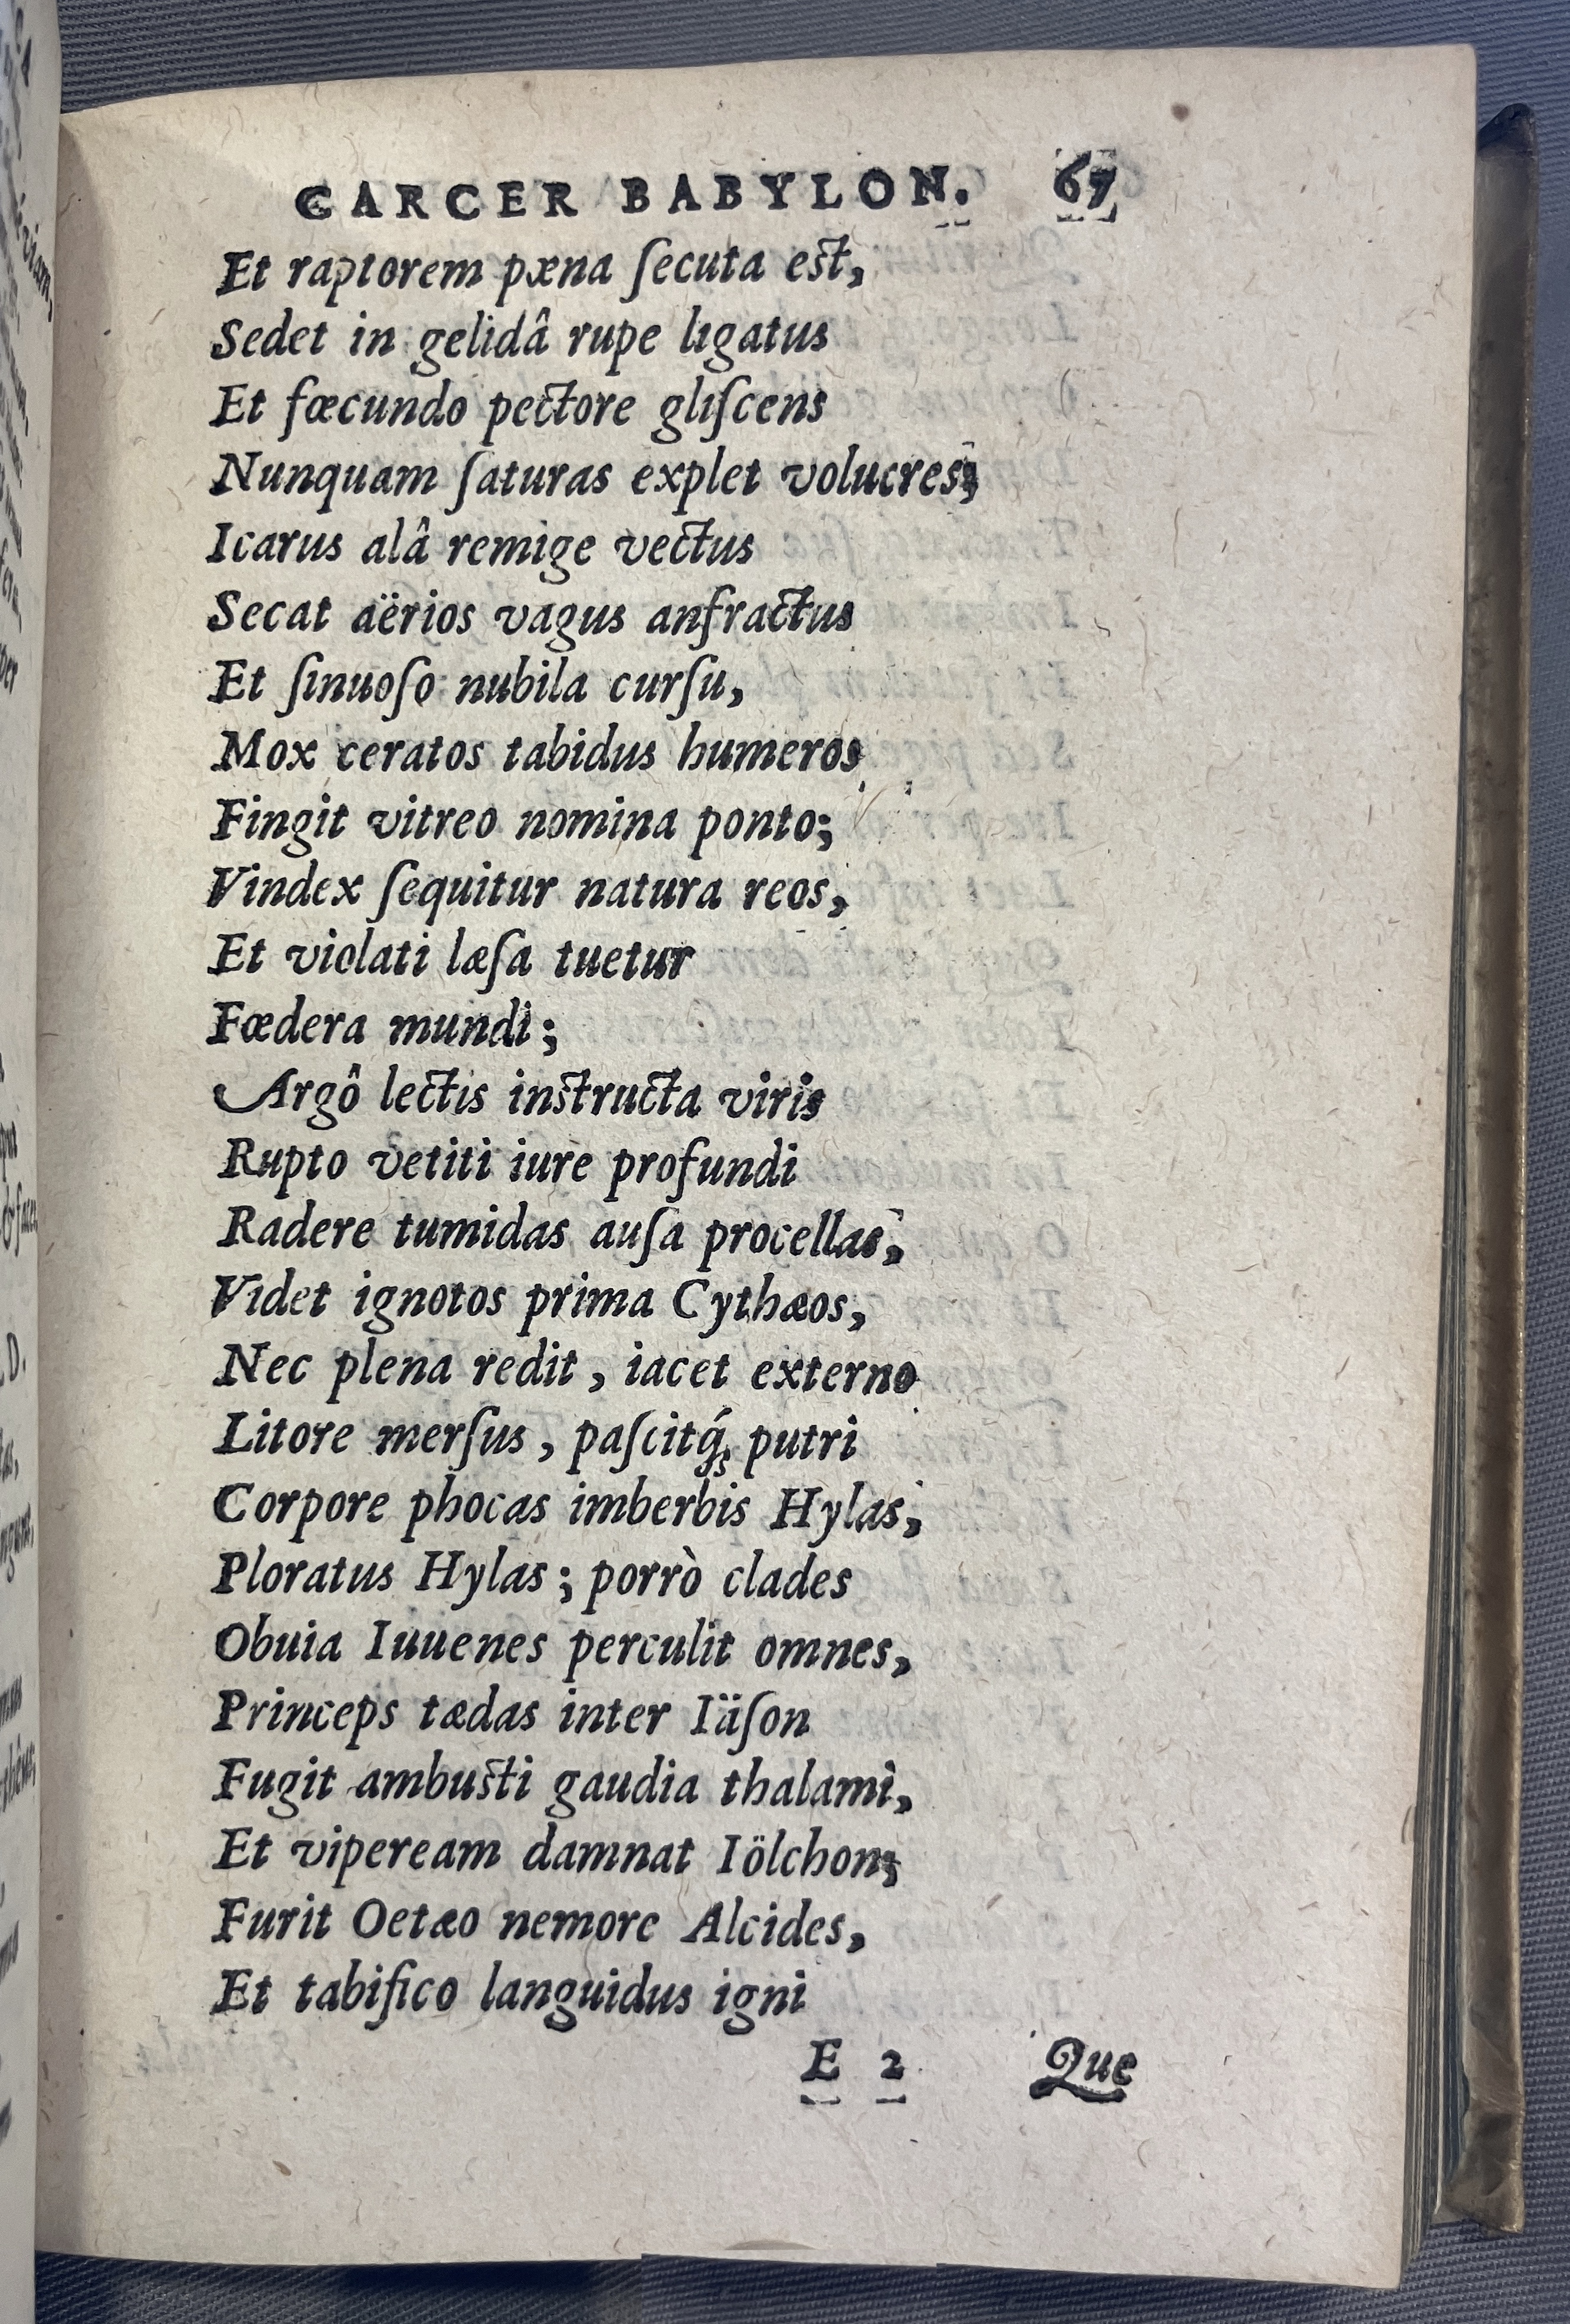 CARCER BABYLON. 67
Et raptorem pæna ſecuta eſt,
Sedet in gelidâ rupe ligatus
Et fœcundo pectore gliſcens
Nunquam ſaturas explet volucres;
Icarus alâ remige vectus
Secat aërios vagus anfractus
Et ſinuoſo nubila curſu,
Mox ceratos tabidus humeros
Fingit vitreo nomina ponto;
Vindex ſequitur natura reos,
Et violati læſa tuetur
Fœdera mundi;
Argô lectis inſtructa viris
Rupto vetiti iure profundi
Radere tumidas auſa procellas,
Videt ignotos prima Cythæos,
Nec plena redit, iacet externo
Litore merſus, paſcitq́; putri
Corpore phocas imberbis Hylas;
Ploratus Hylas; porrò clades
Obuia Iuuenes perculit omnes,
Princeps tædas inter Iäſon
Fugit ambuſti gaudia thalami,
Et vipeream damnat Iölchon;
Furit Oetæo nemore Alcides,
Et tabifico languidus igni
E 2 Que